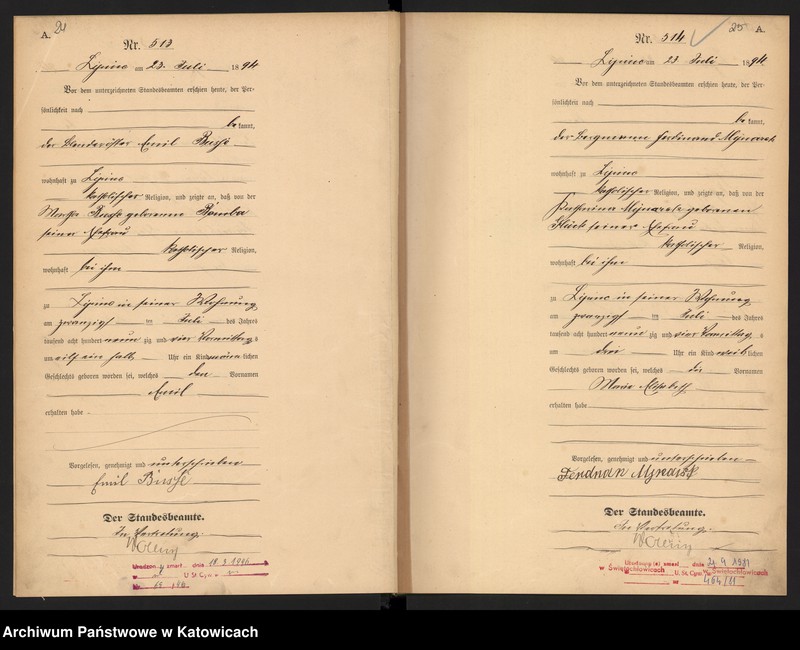 A. 24
Nr. 513
Lipine am 23. Juli 1894
Vor dem unterzeichneten Standesbeamten erschien heute, der Per-
sönlichkeit nach
bekannt,
der Emil Busse
wohnhaft zu Lipine
katholischer Religion, und zeigte an, daß von der
Busse geborenen
seiner Ehefrau
katholischer Religion,
wohnhaft bei ihm
zu Lipine in seiner Wohnung
am zwanzigsten Juli des Jahres
tausend acht hundert neunzig und vier Vormittags
um elf ein halb Uhr ein Kind männlichen
Geschlechts geboren worden sei, welches den Vornamen
Emil
erhalten habe.
Vorgelesen, genehmigt und unterschrieben
Emil Busse
Der Standesbeamte.
In Vertretung.
A. 25
Nr. 514
Lipine am 23 Juli 1894
Vor dem unterzeichneten Standesbeamten erschien heute, der Per-
sönlichkeit nach
bekannt,
der Bergmann Ferdinand Mynarek
wohnhaft zu Lipine
katholischer Religion, und zeigte an, daß von der
Mynarek geborenen
Glück seiner Ehefrau
katholischer Religion,
wohnhaft bei ihm
zu Lipine in seiner Wohnung
am zwanzigsten Juli des Jahres
tausend acht hundert neunzig und vier Vormittags
um drei Uhr ein Kind weiblichen
Geschlechts geboren worden sei, welches die Vornamen
Marie Elisabeth
erhalten habe
Vorgelesen, genehmigt und unterschrieben
Der Standesbeamte.
In Vertretung.
w Świętochłowicach
464/11
Archiwum Państwowe w Katowicach